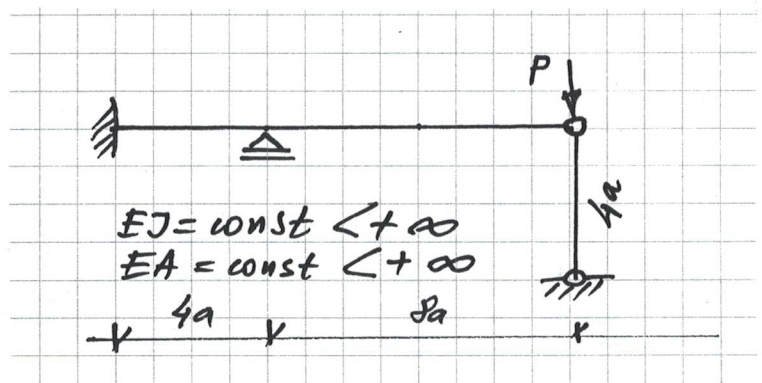 P
4a
EJ = const < + ∞
EA = const < + ∞
4a 8a